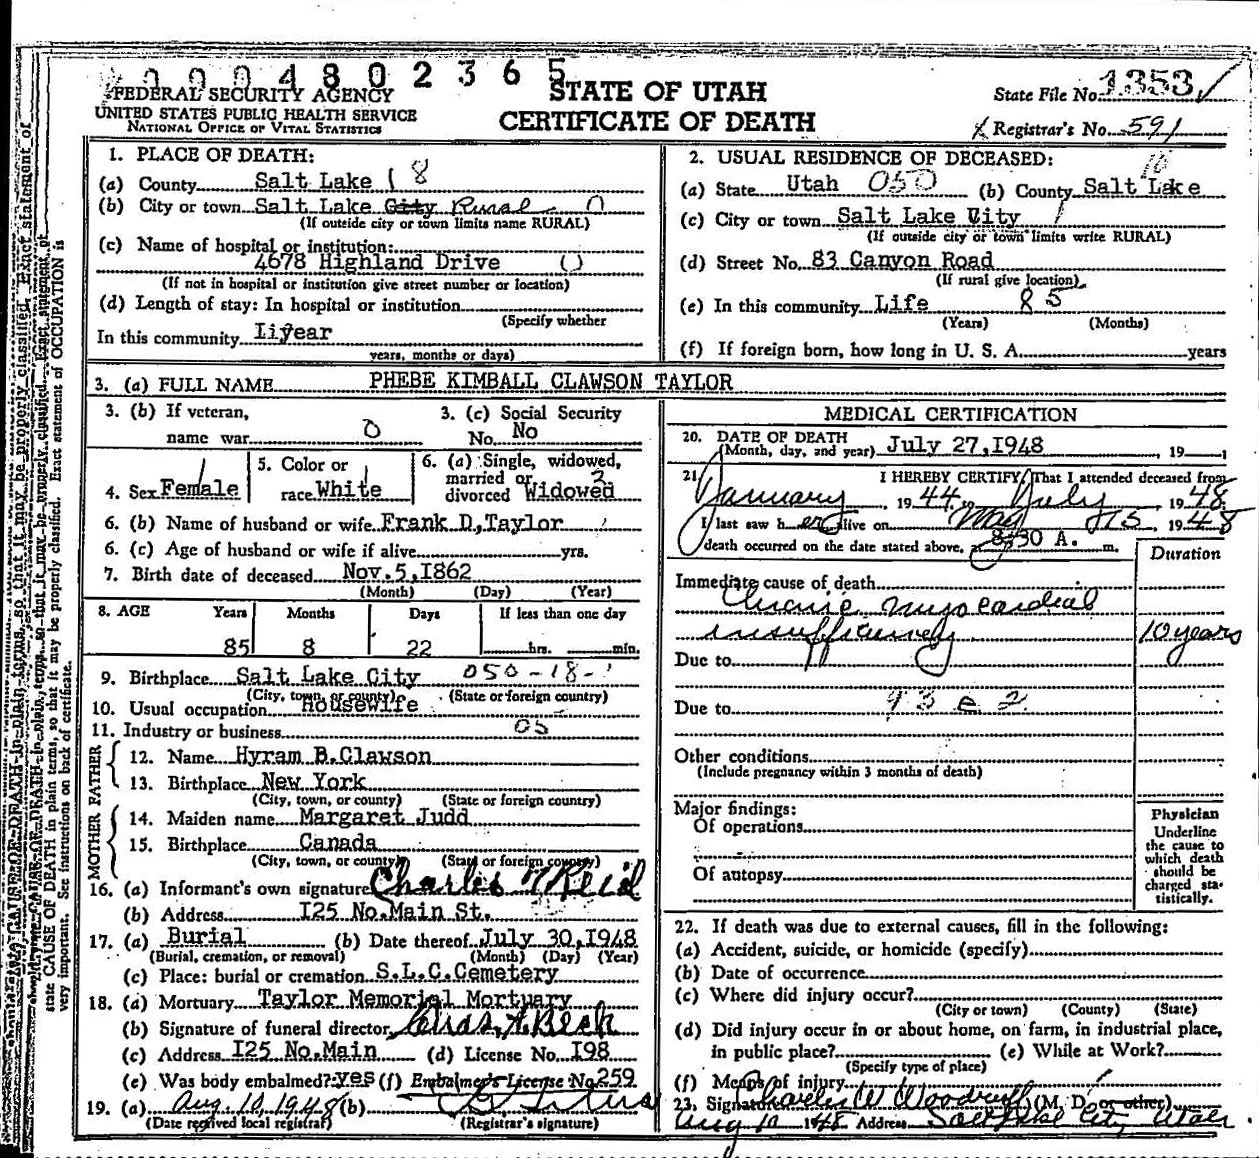 0 0 0 4 8 0 2 3 6 5
FEDERAL SECURITY AGENCY
UNITED STATES PUBLIC HEALTH SERVICE
NATIONAL OFFICE OF VITAL STATISTICS
STATE OF UTAH
CERTIFICATE OF DEATH
State File No. 1353
Registrar's No. 591
1. PLACE OF DEATH:
(a) County Salt Lake 18
(b) City or town Salt Lake City Rural 0
(If outside city or town limits name RURAL)
(c) Name of hospital or institution:
4678 Highland Drive 0
(If not in hospital or institution give street number or location)
(d) Length of stay: In hospital or institution
(Specify whether
In this community Liyear
years, months or days)
2. USUAL RESIDENCE OF DECEASED:
(a) State Utah 050 (b) County Salt Lake
(c) City or town Salt Lake City
(If outside city or town limits write RURAL)
(d) Street No. 83 Canyon Road
(If rural give location)
(e) In this community Life 85
(Years) (Months)
(f) If foreign born, how long in U. S. A. years
3. (a) FULL NAME PHEBE KIMBALL CLAWSON TAYLOR
3. (b) If veteran,
name war 0
3. (c) Social Security
No. No
4. Sex Female
5. Color or
race White
6. (a) Single, widowed,
married or
divorced Widowed
6. (b) Name of husband or wife Frank D,Taylor
6. (c) Age of husband or wife if alive yrs.
7. Birth date of deceased Nov.5,I862
(Month) (Day) (Year)
8. AGE Years Months Days If less than one day
85 8 22 hrs. min.
9. Birthplace Salt Lake City 050-18-
(City, town, or county) (State or foreign country)
10. Usual occupation Housewife
11. Industry or business 05
FATHER
12. Name Hyram B.Clawson
13. Birthplace New York
(City, town, or county) (State or foreign country)
MOTHER
14. Maiden name Margaret Judd
15. Birthplace Canada
(City, town, or county) (State or foreign country)
16. (a) Informant's own signature Charles T Reid
(b) Address I25 No.Main St.
17. (a) Burial (b) Date thereof July 30,I948
(Burial, cremation, or removal) (Month) (Day) (Year)
(c) Place: burial or cremation S.L.C.Cemetery
18. (a) Mortuary Taylor Memorial Mortuary
(b) Signature of funeral director Chas. A. Beck
(c) Address I25 No.Main (d) License No. I98
(e) Was body embalmed? yes (f) Embalmer's License No 259
19. (a) Aug. 10, 1948 (b)
(Date received local registrar) (Registrar's signature)
MEDICAL CERTIFICATION
20. DATE OF DEATH
(Month, day, and year) July 27,I948, 19
21. I HEREBY CERTIFY, That I attended deceased from
January, 1944, to July, 1948
I last saw her alive on May 15 1948
death occurred on the date stated above, at 8:30 A. m.
Duration
Immediate cause of death
Chronic myocardial
insufficiency 10 years
Due to
Due to 93 c 2
Other conditions
(Include pregnancy within 3 months of death)
Major findings:
Of operations
Of autopsy
Physician
Underline
the cause to
which death
should be
charged sta-
tistically.
22. If death was due to external causes, fill in the following:
(a) Accident, suicide, or homicide (specify)
(b) Date of occurrence
(c) Where did injury occur?
(City or town) (County) (State)
(d) Did injury occur in or about home, on farm, in industrial place,
in public place? (e) While at Work?
(Specify type of place)
(f) Means of injury
23. Signature Charles W Woodruff (M. D. or other)
Aug 10 1948 Address Salt Lake City, Utah
state CAUSE OF DEATH in plain terms, so that it may be properly classified. Exact statement of OCCUPATION is
very important. See instructions on back of certificate.